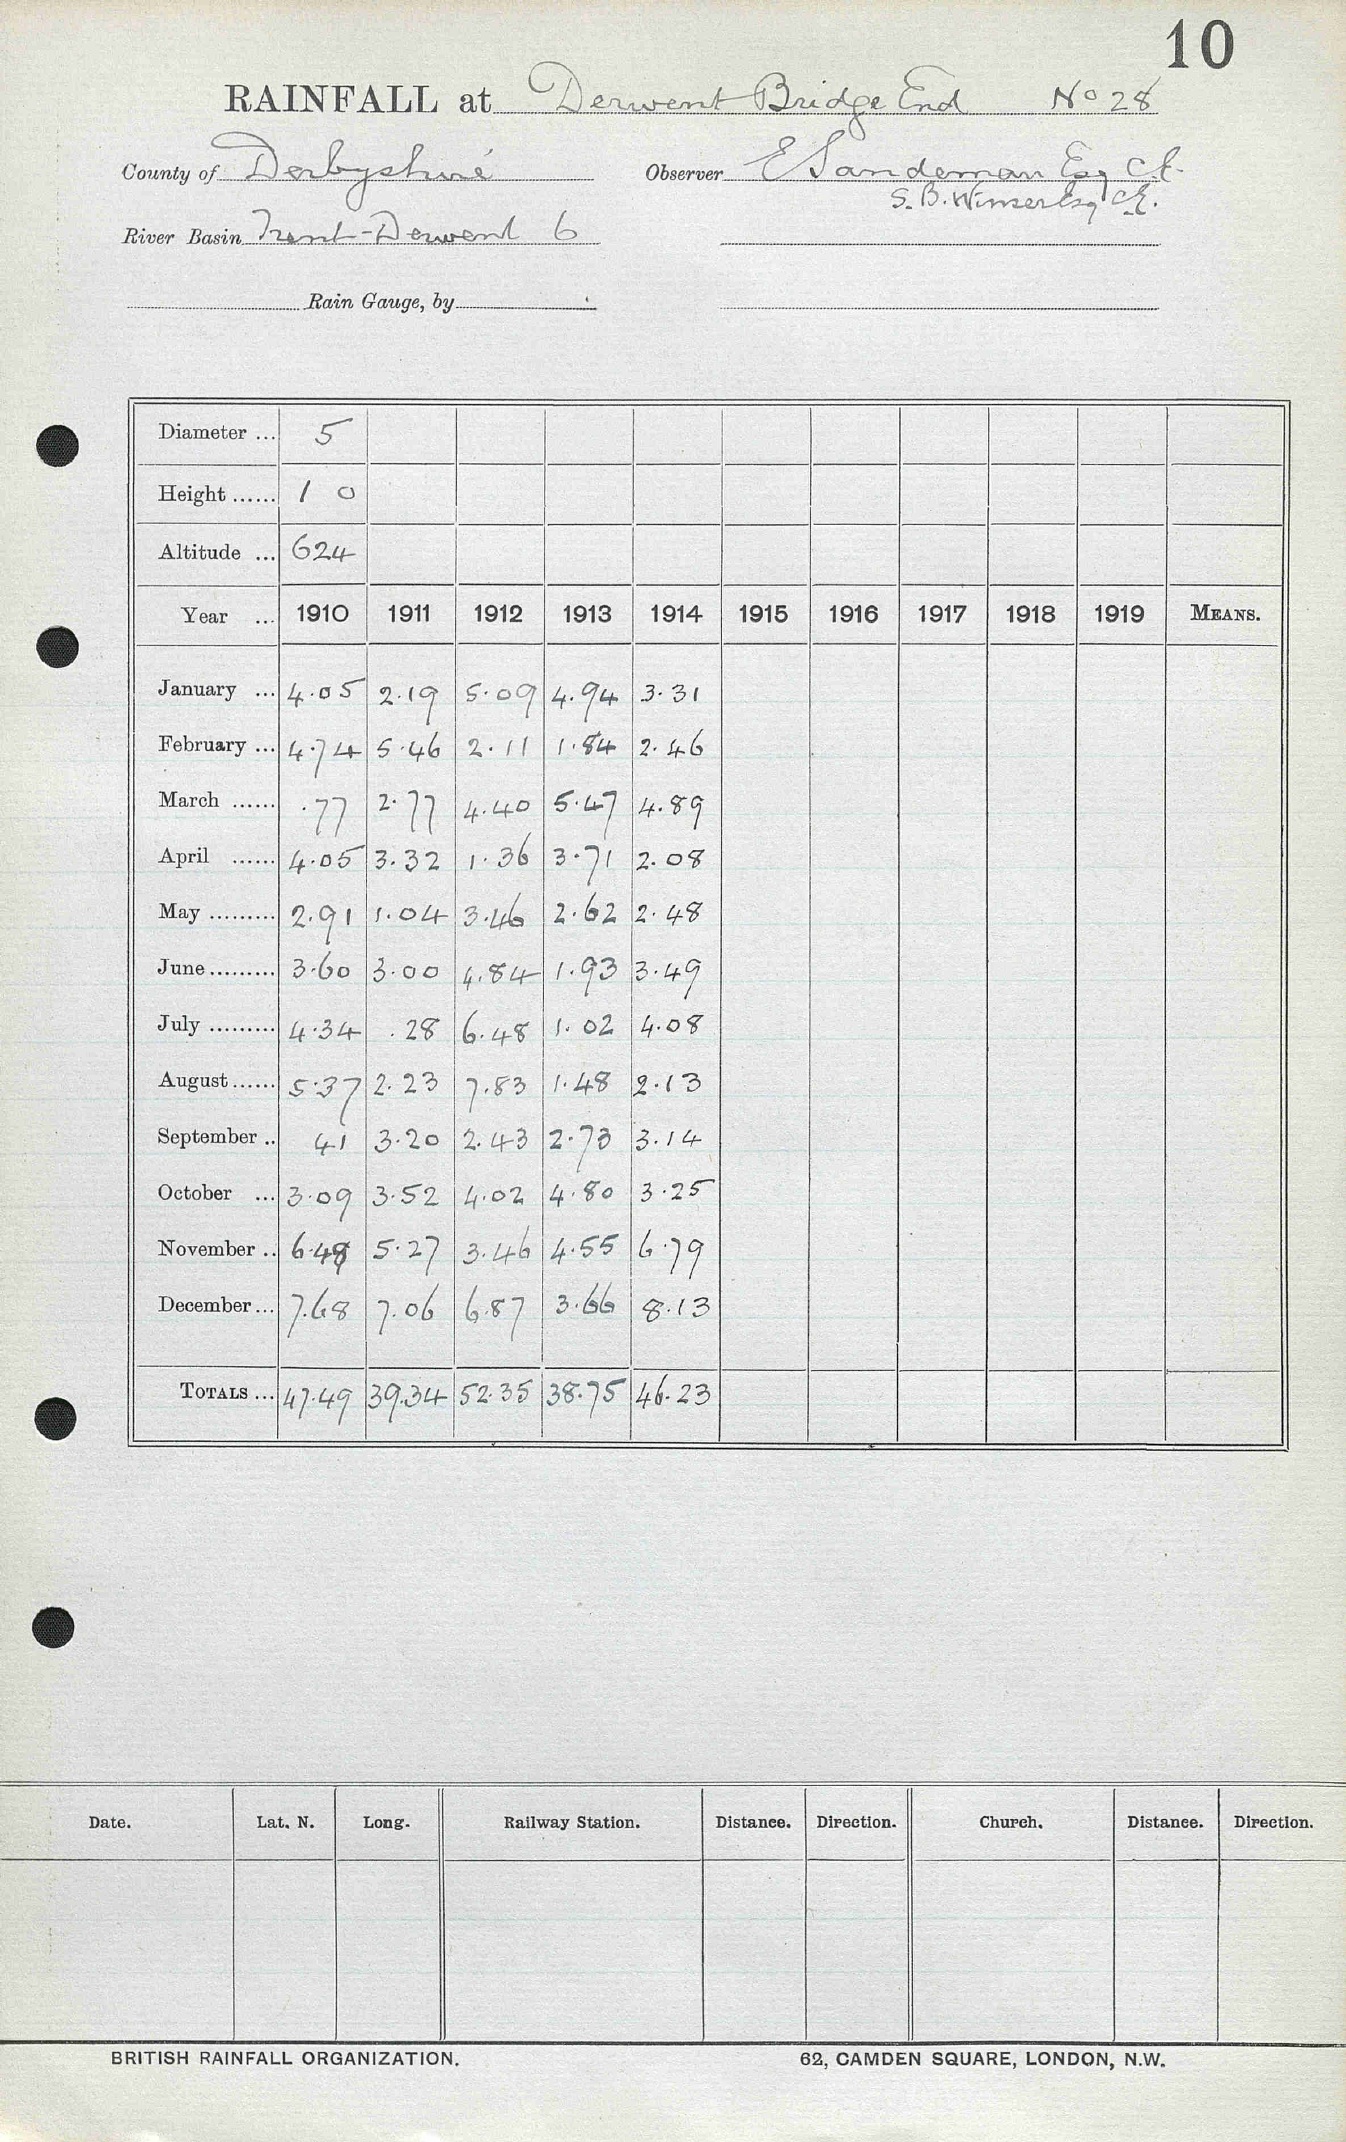 10
RAINFALL at Derwent Bridge End No 28
County of Derbyshire Observer E Sandeman Esq C.E.
S. B. Winser Esq C.E.
River Basin Trent-Derwent 6
Rain Gauge, by
Diameter ... 5
Height ...... 1 0
Altitude ... 624
Year ... 1910 1911 1912 1913 1914 1915 1916 1917 1918 1919 MEANS.
January ... 4.05 2.19 5.09 4.94 3.31
February ... 4.74 5.46 2.11 1.84 2.46
March ...... .77 2.77 4.40 5.47 4.89
April ...... 4.05 3.32 1.36 3.71 2.08
May ......... 2.91 1.04 3.46 2.62 2.48
June ......... 3.60 3.00 4.84 1.93 3.49
July ......... 4.34 .28 6.48 1.02 4.08
August ...... 5.37 2.23 7.83 1.48 2.13
September .. 41 3.20 2.43 2.73 3.14
October ... 3.09 3.52 4.02 4.80 3.25
November .. 6.48 5.27 3.46 4.55 6.79
December ... 7.68 7.06 6.87 3.66 8.13
TOTALS ... 47.49 39.34 52.35 38.75 46.23
Date. Lat. N. Long. Railway Station. Distance. Direction. Church. Distance. Direction.
BRITISH RAINFALL ORGANIZATION. 62, CAMDEN SQUARE, LONDON, N.W.